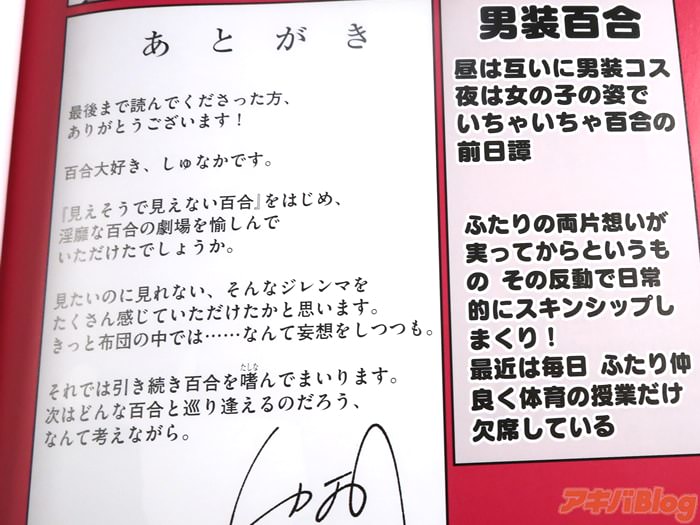 あとがき
最後まで読んでくださった方、
ありがとうございます！
百合大好き、しゅなかです。
『見えそうで見えない百合』をはじめ、
淫靡な百合の劇場を愉しんで
いただけたでしょうか。
見たいのに見れない、そんなジレンマを
たくさん感じていただけたかと思います。
きっと布団の中では……なんて妄想をしつつも。
それでは引き続き百合を嗜んでまいります。
たしな
次はどんな百合と巡り逢えるのだろう、
なんて考えながら。
男装百合
昼は互いに男装コス
夜は女の子の姿で
いちゃいちゃ百合の
前日譚
ふたりの両片想いが
実ってからというも
の その反動で日常
的にスキンシップし
まくり！
最近は毎日 ふたり仲
良く体育の授業だけ
欠席している
アキバBlog